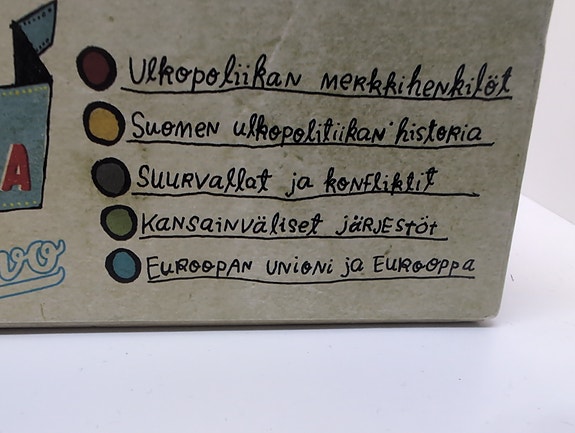 Ulkopoliikan merkkihenkilöt
Suomen ulkopolitiikan historia
Suurvallat ja konfliktit
Kansainväliset järjestöt
A
Euroopan unioni ja Eurooppa